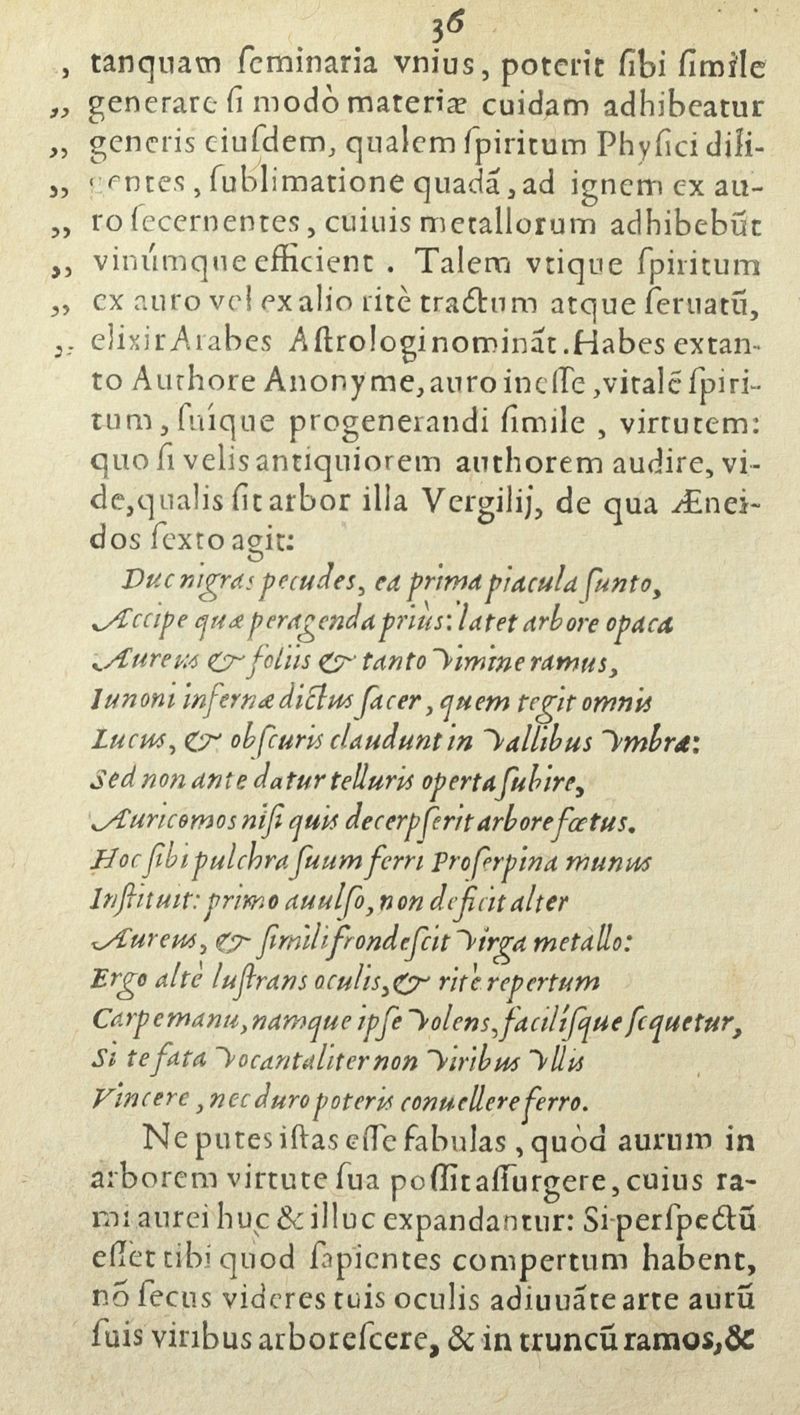 36
, tanquam ſeminaria vnius, poterit ſibi ſimile
„ generare ſi modò materiæ cuidam adhibeatur
„ generis eiuſdem, qualem ſpiritum Phyſici dili-
„ gentes, ſublimatione quadã, ad ignem ex au-
„ ro ſecernentes, cuiuis metallorum adhibebũt
„ vinúmque efficient. Talem vtique ſpiritum
„ ex auro vel ex alio ritè tractum atque ſeruatũ,
„ elixir Arabes Aſtrologi nominãt. Habes extan-
to Authore Anonyme, auro ineſſe, vitalẽ ſpiri-
tum, ſuique progenerandi ſimile, virtutem:
quo ſi velis antiquiorem authorem audire, vi-
de, qualis ſit arbor illa Vergilij, de qua Ænei-
dos ſexto agit:
Duc nigras pecudes, ea prima piacula ſunto,
Accipe quæ peragenda priùs: latet arbore opaca
Aureus & foliis & tanto vimine ramus,
Iunoni infernæ dictus ſacer, quem tegit omnis
Lucus, & obſcuris claudunt in vallibus vmbræ:
Sed non ante datur telluris operta ſubire,
Auricomos niſi quis decerpſerit arbore fœtus.
Hoc ſibi pulchra ſuum ferri Proſerpina munus
Inſtituit: primo auulſo, non deficit alter
Aureus, & ſimili frondeſcit virga metallo:
Ergo altè luſtrans oculis, & ritè repertum
Carpe manu, namque ipſe volens, faciliſque ſequetur,
Si te fata vocant aliter non viribus vllis
Vincere, nec duro poteris conuellere ferro.
Ne putes iſtas eſſe fabulas, quòd aurum in
arborem virtute ſua poſſit aſſurgere, cuius ra-
mi aurei huc & illuc expandantur: Si perſpectũ
eſſet tibi quod ſapientes compertum habent,
nõ ſecus videres tuis oculis adiuuãte arte aurũ
ſuis viribus arboreſcere, & in truncũ ramos, &